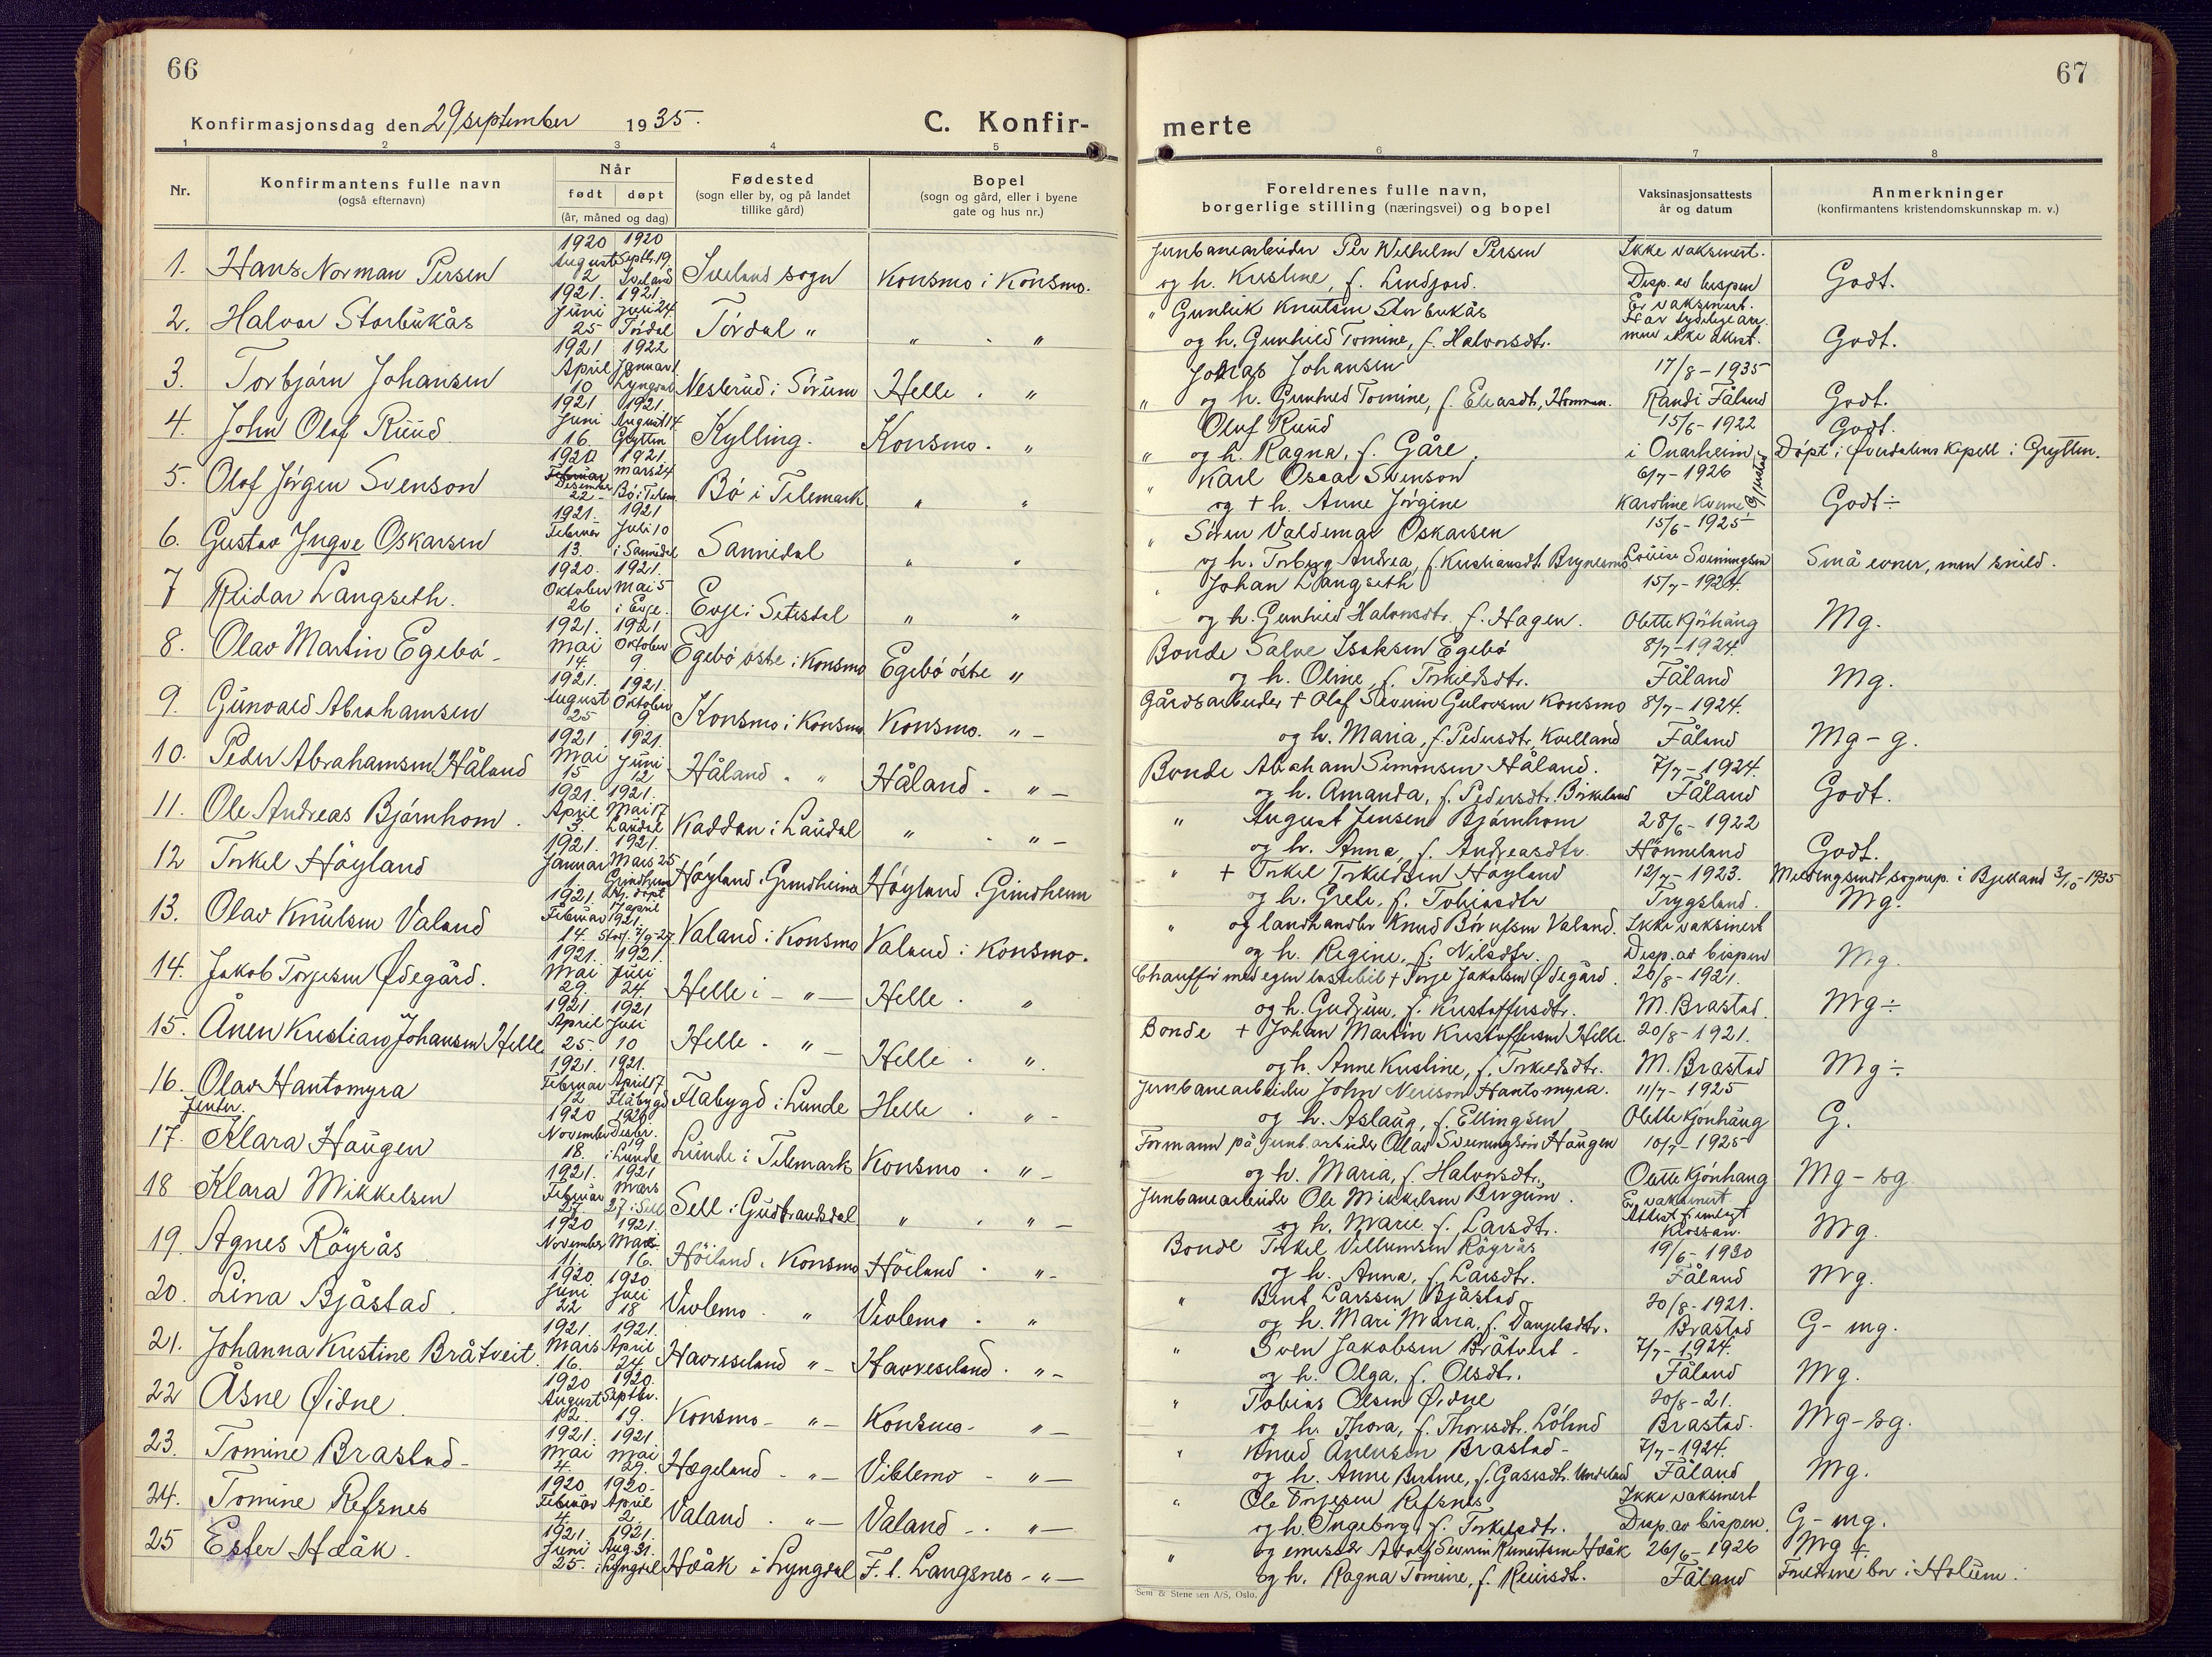 66
Konfirmasjonsdag den 29 september 1935.
C. Konfir-
1 2 3 4 5
Nr.
Konfirmantens fulle navn
(også efternavn)
Når
født døpt
(år, måned og dag)
Fødested
(sogn eller by, og på landet
tillike gård)
Bopel
(sogn og gård, eller i byene
gate og hus nr.)
1. Hans Norman Persen 1920 August 2 1920 Septbr. 19. Iveland Ivelands sogn Konsmo i Konsmo.
2. Halvor Storbukås 1921. Juni 25 1921. Juli 24. Tördal Tördal " " . "
3. Torbjörn Johansen 1921 April 10 1922 Januar 1. Lyngdal Nesterud i Sörum Helle . "
4. John Olaf Ruud 1921 Juni 16. 1921 August 14 Grytten Kylling. Konsmo . "
5. Olaf Jörgen Svenson 1920 Februar Desember 22 1921. mars 24 Bö i Telem. Bö i Telemark " "
6. Gustav Ingve Oskarsen 1921. Februar 13. 1921 Juli 10 i Sannidal Sannidal " "
7 Reidar Langseth. 1920. Oktober 26 1921. Mai 5 i Evje. Evje i Setesdal " "
8. Olav Martin Egebö 1921. Mai 14. 1921 Oktober 9. Egebö öste i Konsmo Egebö öste "
9. Gunvald Abrahamsen 1921. August 25 1921. Oktober 9. Konsmo i Konsmo Konsmo. " –
10. Peder Abrahamsen Håland 1921 Mai 15 1921. Juni 12 Håland . " Håland . " –
11. Ole Andreas Bjårnhom . 1921. April 3. 1921. Mai 17 Laudal Kaddan i Laudal " . " –
12 Torkel Höyland 1921. Januar 1921. Mars 25 Grindheim Höyland i Grindheim Höyland i Grindheim
13. Olav Knutsen Valand 1921. Februar 14. 17 april 1921. Valand i Konsmo Valand i Konsmo.
14. Jakob Torjesen Ødegård. 1921. Mai 29. 1921. Juli 24. Helle i – " – Helle . "
15. Ånen Kristian Johansen Helle 1921 April 25 1921 Juli 10 Helle . " – Helle . "
16. Olav Hantomyra 1921. Februar 12. 1921. April 17 Flåbygd Flåbygd i Lunde Helle . " –
Jenter.
17. Klara Haugen 1920 November 18. 1920. Desbr. 19 i Lunde Lunde i Telemark Konsmo . " –
18 Klara Mikkelsen 1921. Februar 27. 1921 Mars 27 i Sell Sell i Gudbrandsdal " . " –
19. Agnes Röyrås 1920 November 11. 1921. Mars 16. Höiland . Konsmo Höiland . " –
20. Lina Bjåstad . 1920. Juni 22 1920 Juli 18 Vivlemo . " Vivlemo . "
21. Johanna Kristine Bråtveit. 1921. Mars 16. 1921. April 24. Havreseland " – Havreseland . " –
22 Åsne Øidne . 1920 August 12. 1920. Septbr. 19. Konsmo – " – Konsmo – " –
23. Tomine Brastad – 1921. Mai 4. 1921 Mai 29. Hægeland – " – Viblemo – " –
24. Tomine Refsnes 1920 Februar 4. 1920– April 2. Valand . " – Valand – . " –
25 Ester Hååk . 1921. Juni 25. 1921. Aug. 31. i Lyngdal Hååk i Lyngdal F. l. Langsnes – " –
67
merte
6 7 8
Foreldrenes fulle navn,
borgerlige stilling (næringsvei) og bopel
Vaksinasjonsattests
år og datum
Anmerkninger
(konfirmantens kristendomskunnskap m. v.)
Jernbanearbeider Per Wilhelm Persen Ikke vaksinert.
og h. Kristine, f. Lindjord. Disp. av bispen Godt.
" Gunleik Knutsen Storbukås Er vaksinert. Har tydelige arr.
og h. Gunhild Tomine, f. Halvorsdtr. men ikke attest. Godt.
Jonas Johansen 17/8 – 1935
" og h. Gunhild Tomine, f. Eliasdtr, Homman. Randi Fåland Godt.
Oluf Ruud 15/6 – 1922 Godt.
" og h. Ragna, f. Gåre. i Onarheim Döpt i Øverdalens Kapell i Grytten.
" Karl Oscar Svenson 6/7 – 1926
og + h. Anne Jörgine Karoline Kverne Godt ÷
" Sören Valdemar Oskarsen 15/6 – 1925
og h. Torborg Andrea, f. Kristiansdtr. Louise Sveiningsen Små evner, men snild.
" Johan Langseth 15/7 – 1924.
og h. Gunhild Halvorsdtr. f. Hagen. Olette Mg.
Bonde Salve Isaksen Egebö 8/7 – 1924.
og h. Oline, f. Torkildsdtr. Fåland Mg.
Gårdsarbeider + Olaf Severin Gulovsen Konsmo 8/7 – 1924.
og h. Maria, f. Pedersdtr. Kvelland Fåland Mg – g.
Bonde Abraham Simonsen Håland. 7/7 – 1924.
og h. Amanda, f. Pedersdtr. Birkeland Fåland Godt.
" August Jensen Bjårnhom 28/6 – 1922
og h. Anna, f. Andreasdtr. Hönneland Godt.
" + Torkel Torkildsen Höyland 12/7 – 1923. Melding sendt sognep. i Bjelland 3/10 – 1935
og h. Grete, f. Tobiasdtr Trygsland. Mg.
" og landhandler Knud Börufsen Valand. Ikke vaksinert
og h. Regine, f. Nilsdtr. Disp. av bispen Mg.
Chaufför med egen lastebil + Torje Jakobsen Ødegård. 20/8 – 1921.
og h. Gudrun, f. Kristoffersdtr. M. Brastad. Mg ÷
Bonde + Johan Martin Kristoffersen Helle. 20/8 – 1921.
og h. Anne Kristine, f. Torkildsdtr. M. Brastad Mg ÷
Jernbanearbeider John Hantomyra. 11/7 – 1925
og h. Aslaug, f. Ellingsen Olette Kjönhaug G.
Formann på jernb. arbeider Olav Sveinungson Haugen 10/7 – 1925
og h. Maria, f. Halvorsdtr. Olette Kjönhaug Mg – sg
Jernbanearbeider Ole Mikkelsen Bergum. Er vaksinert Attest fremlagt
og h. Marie f. Larsdtr. Klossan. Mg.
Bonde Torkel Villumsen Röyrås 19/6 – 1930
og h. Anna, f. Larsdtr. Fåland Mg.
" Berit Larssen Bjåstad 20/8 – 1921.
og h. Mari Maria, f. Danjelsdtr. Brastad G – mg.
" Sven Jakobsen Bråtveit – 7/7 – 1924.
og h. Olga, f. Olsdtr. Fåland Mg.
" Tobias Olsen Øidne 20/8 – 21.
og h. Thora, f. Thoresdtr. Lölind Brastad. Mg – sg.
" Knud Ånensen Brastad – 7/7 – 1924.
og h. Anne Bertine, f. Gasesdtr. Undeland Fåland Mg.
" Ole Torjesen Refsnes Ikke vaksinert
og h. Ingeborg, f. Torkelsdtr. Disp. av bispen. G – mg.
" og emissær Adolf Severin Reinertsen Hååk 26/6 – 1926 Mg
og h. Ragna Tomine, f. Reiersdt. Fåland Foreldrene bor i Holum.
Sem & Stenersen A/S, Oslo.